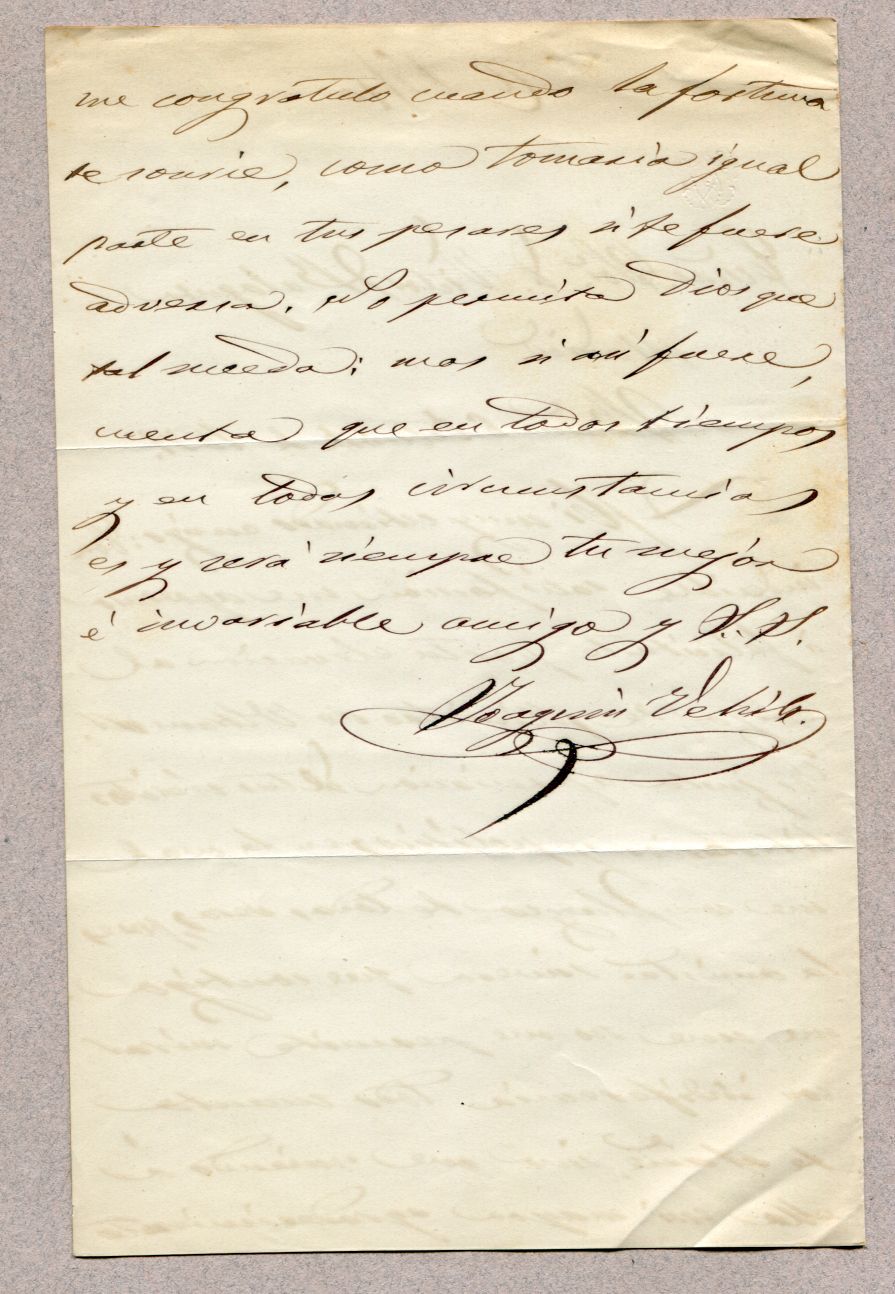 me congratulo cuando la fortuna
te sonrie, como tomaria igual
parte en tus pesares si te fuere
adversa. No permita Dios que
tal suceda; mas si asi fuere,
cuenta que en todos tiempos
y en todas circunstancias
es y será siempre tu mejor
é invariable amigo y S. S.
Joaquin